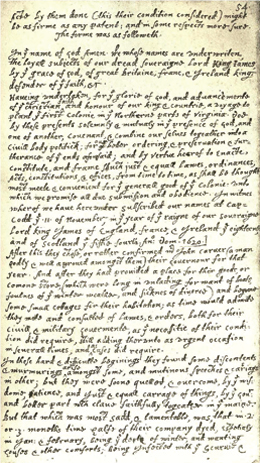 54
by them done (this their condition considered) might
be as firme as any patent; and in some respects more sure.
The forme was as followeth.
In yᵉ name of god Amen. we whose names are underwriten,
the loyall subjects of our dread soveraigne Lord King James
by yᵉ grace of god, of great Britaine, franc, & Ireland king,
defender of yᵉ faith, &c
Haveing undertaken, for yᵉ glorie of god, and advancemente
of yᵉ christian faith and honour of our king & countrie, a voyage to
plant yᵉ first colonie in yᵉ Northerne parts of Virginia. Doe
by these presents solemnly & mutualy in yᵉ presence of god, and
one of another, covenant, & combine our selves togeather into a
Civill body politick; for our better ordering, & preservation & fur=
therance of yᵉ ends aforesaid; and by vertue hearof to Enacte,
constitute, and frame shuch just & equall Lawes, ordinances,
Acts, constitutions, & offices, from time to time, as shall be thought
most meete & convenient for yᵉ generall good of yᵉ Colonie: unto
which we promise all due submission and obedience. In witnes
wherof we have hereunder subscribed our names at cap=
Codd yᵉ 11 of November, in yᵉ year of yᵉ raigne of our soveraigne
Lord king James of England, france, & Ireland yᵉ eighteenth
and of Scotland yᵉ fiftie fourth. Ano: Dom 1620.
After this they chose, or rather confirmed mr John Carver (a man
godly & well approved amongst them) their Governour for that
year. And after they had provided a place for their goods, or
comone store, (which were long in unlading for want of boats,
foulnes of yᵉ winter weather, and sicknes of diverce) and begune
some small cottages for their habitation; as time would admitte
they mette and consulted of Lawes, & orders, both for their
civill & military govermente, as yᵉ necessitie of their condi=
tion did require, still adding therunto as urgent occasion
in severall times, and cases did require.
In these hard & difficulte beginings they found some discontents
& murmurings arise amongst some, and mutinous speeches & cariags
in other; but they were soone quelled, & overcome, by yᵉ wis=
dome, patience, and just & equall carrage of things, by yᵉ Govr
and better part wᶜʰ clave faithfully togeather in yᵉ maine.
But that which was most sadd, & lamentable, was, that in 2
or 3 moneths time halfe of their company dyed, espetialy
in Jan: & february, being yᵉ depth of winter, and wanting
houses & other comforts; being infected with yᵉ scurvie &